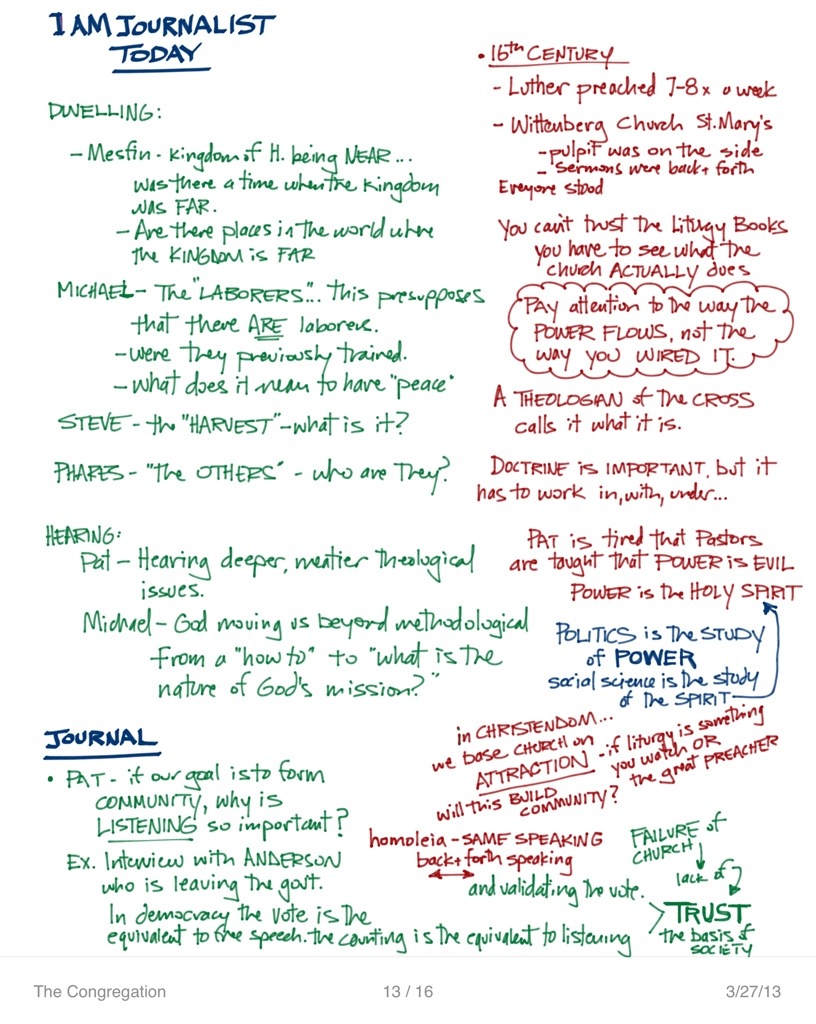 I AM JOURNALIST
TODAY
DWELLING:
- Mesfin - Kingdom of H. being NEAR...
was there a time when the Kingdom
was FAR.
- Are there places in the world where
the KINGDOM is FAR
MICHAEL - The "LABORERS"... this presupposes
that there ARE laborers.
- were they previously trained.
- what does it mean to have "peace"
STEVE - the "HARVEST" - what is it?
PHARES - "The OTHERS" - who are They?
HEARING:
Pat - Hearing deeper, meatier Theological
issues.
Michael - God moving us beyond methodological
from a "how to" to "what is the
nature of God's mission?"
JOURNAL
• PAT - if our goal is to form
COMMUNITY, why is
LISTENING so important?
Ex. Interview with ANDERSON
who is leaving the govt.
In democracy the vote is the
equivalent to free speech. the counting is the equivalent to listening
and validating the vote.
• 16th CENTURY
- Luther preached 7-8x a week
- Wittenberg Church St. Mary's
- pulpit was on the side
- Sermons were back + forth
Everyone stood
You can't trust the Liturgy Books
you have to see what the
church ACTUALLY does
PAY attention to the way the
POWER FLOWS, not the
WAY YOU WIRED IT.
A THEOLOGIAN of The CROSS
calls it what it is.
DOCTRINE is IMPORTANT, but it
has to work in, with, under...
PAT is tired that Pastors
are taught that POWER is EVIL
POWER is the HOLY SPIRIT
POLITICS is The STUDY
of POWER
social science is the study
of The SPIRIT
in CHRISTENDOM...
we base CHURCH on
ATTRACTION - if liturgy is something
you watch OR
the great PREACHER
will this BUILD
COMMUNITY?
homoleia - SAME SPEAKING
back + forth speaking
FAILURE of
CHURCH
lack of
TRUST
the basis of
SOCIETY
The Congregation
13 / 16
3/27/13